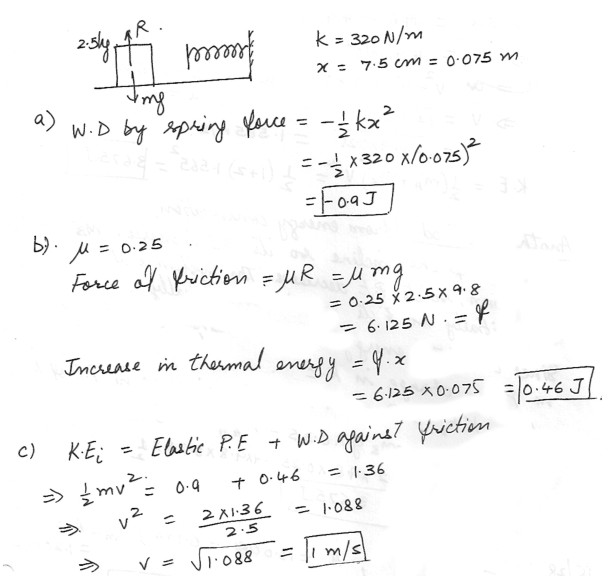 2.5kg R
k = 320 N/m
x = 7.5 cm = 0.075 m
mg
a) W.D by spring force = -1/2 kx²
= -1/2 × 320 × (0.075)²
= -0.9 J
b). μ = 0.25
Force of friction = μR = μmg
= 0.25 × 2.5 × 9.8
= 6.125 N. = f
Increase in thermal energy = f.x
= 6.125 × 0.075 = 0.46 J
c) K.Ei = Elastic P.E + W.D against friction
⇒ 1/2 mv² = 0.9 + 0.46 = 1.36
⇒ v² = 2×1.36/2.5 = 1.088
⇒ v = √1.088 = 1 m/s